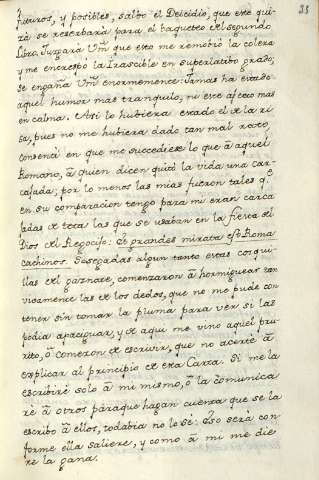 33
futuros, y posibles, salbo el Deicidio, que este qui-
zà se reserbarà para el baqueteo del segundo
Libro. Juzgarà Vm que esto me remobiò la colera
y me encrestò la Irascible en superlatibo grado;
se engaña Vm enormemente: Jamas ha estado
aquel humor mas tranquilo, ni este afecto mas
en calma. Asi lo hubiera estado el de la ri-
sa, pues no me hubiera dado tan mal rato,
consentì en que me succediese lo que à aquel
Romano, à quien dicen quitò la vida una car-
cajada; por lo menos las mias fueron tales qe
en su comparacion tengo para mi eran carca-
jadas de teta las que se usaban en la fiesta del
Dios del Regocijo: Et grandes mirata est Roma
cachinos. Sosegadas algun tanto estas cosqui-
llas del gaznate, comenzaron à hormiguear tan
vivamente las de los dedos, que no me pude con-
tener sin tomar la pluma para vèr si las
podia apaciguar, y de aqui me vino aquel pru-
rito, ò comezon de escrivir, que no acertè à
explicar al principio de esta Carta. Si me la
escribirè solo à mi mismo, ò la comunica-
rè à otros paraque hagan cuenta que se la
escribo à ellos, todabia no lo sè: Eso serà con-
forme ella saliere, y como à mi me die-
re la gana.